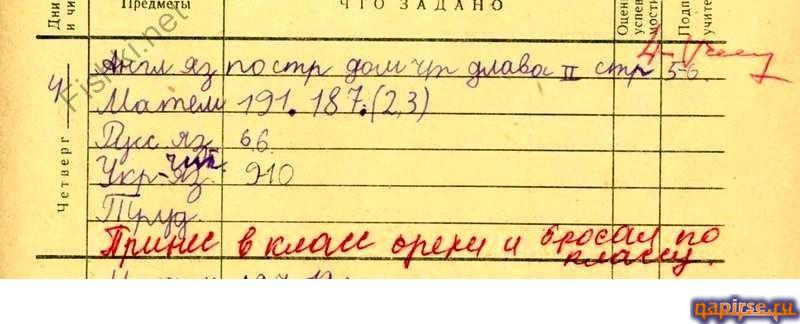 Дни и чи
Предметы
ЧТО ЗАДАНО
Оцен успев мости
Подп учите
Четверг
4
Англ яз по стр дом чт глава II стр 5-6.
4-
Матем 191. 187. (2,3)
Русс яз 66.
Укр-яз. 9-10
чит.
Труд.
Принес в класс орехи и бросал по
классу.
Fishki.net
papirse.ru